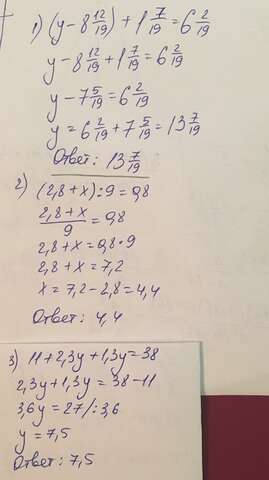 1) (y - 8 12/19) + 1 7/19 = 6 2/19
y - 8 12/19 + 1 7/19 = 6 2/19
y - 7 5/19 = 6 2/19
y = 6 2/19 + 7 5/19 = 13 7/19
Ответ: 13 7/19
2) (2,8 + x) : 9 = 0,8
2,8 + x / 9 = 0,8
2,8 + x = 0,8 · 9
2,8 + x = 7,2
x = 7,2 - 2,8 = 4,4
Ответ: 4,4
3) 11 + 2,3y + 1,3y = 38
2,3y + 1,3y = 38 - 11
3,6y = 27 /: 3,6
y = 7,5
Ответ: 7,5